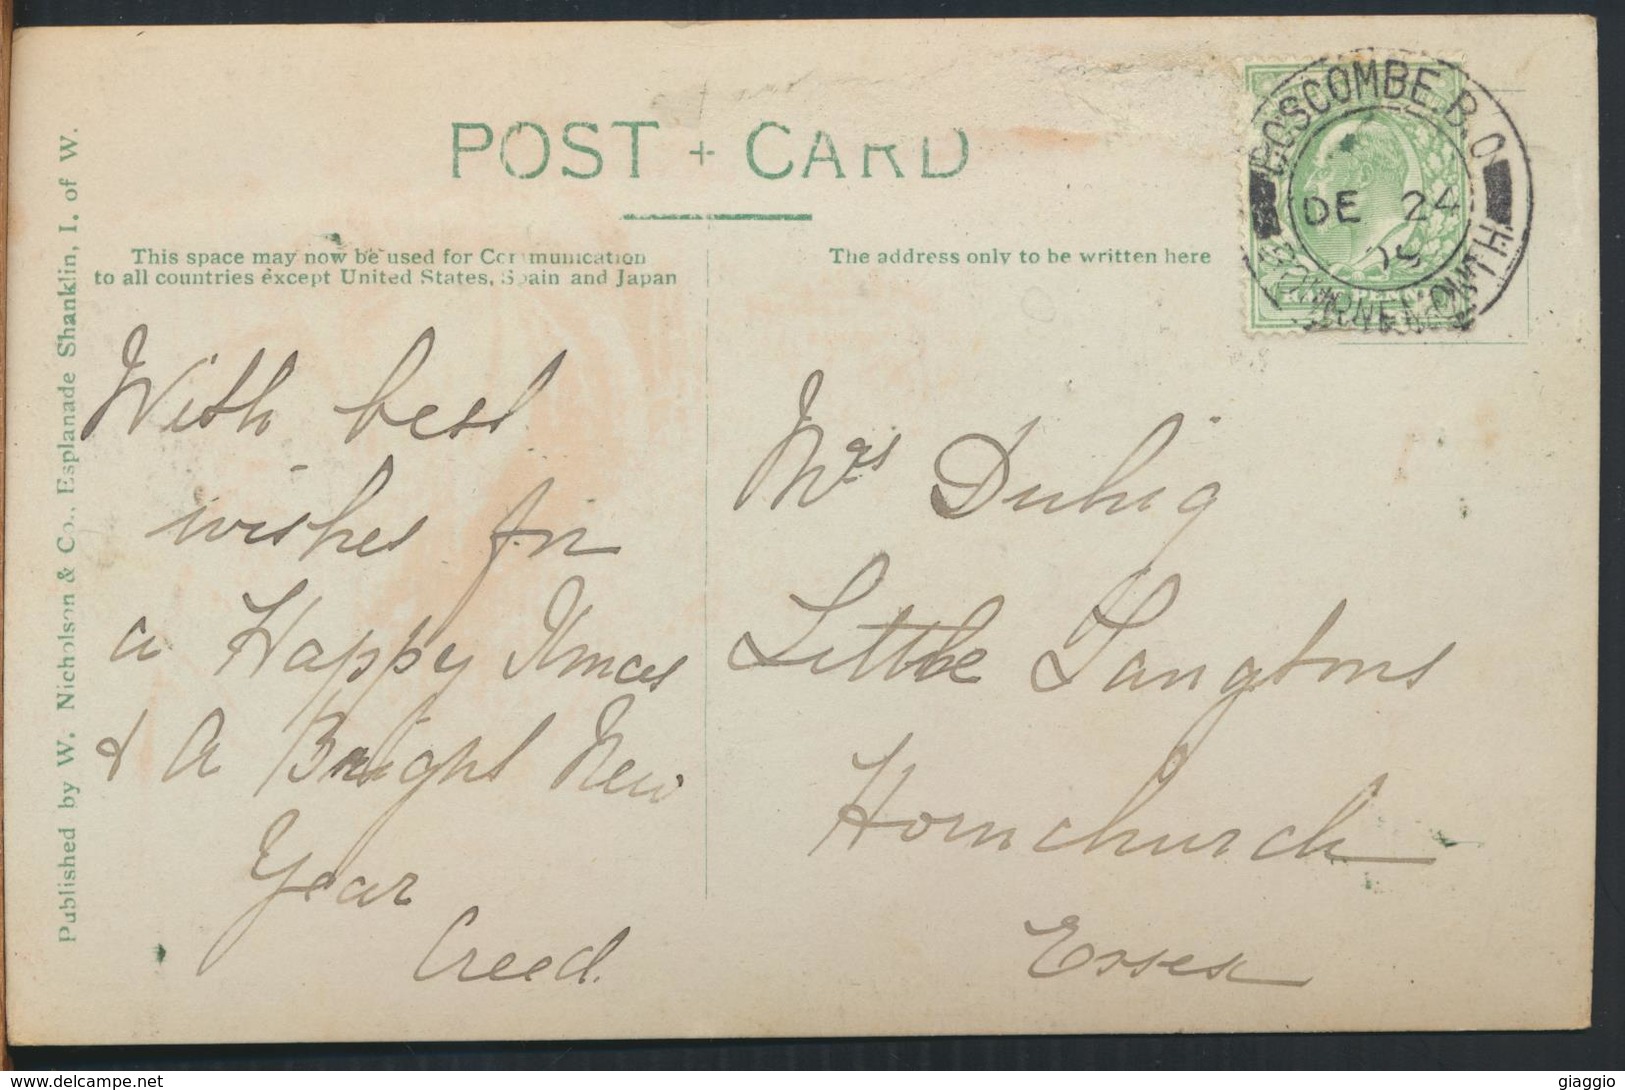 POST + CARD
This space may now be used for Communication
to all countries except United States, Spain and Japan
The address only to be written here
Published by W. Nicholson & Co., Esplanade Shanklin, I. of W.
BOSCOMBE B.O
DE 24
HALF PENNY
With best
wishes for
a Happy Xmas
& A Bright New
Year
Creed.
Mrs Duhig
Little Langtons
Hornchurch
Essex
giaggio